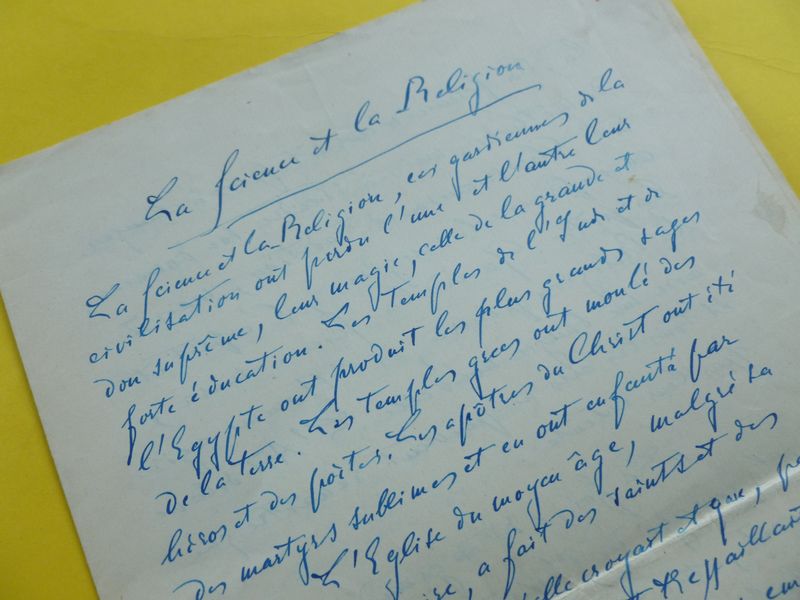 La Science et la Religion
La Science et la Religion, ces gardiennes de la
civilisation ont perdu l'une et l'autre leur
don suprême, leur magie, celle de la grande et
forte éducation. Les temples de l'Inde et de
l'Egypte ont produit les plus grands sages
de la terre. Les temples grecs ont moulé des
héros et des poètes. Les apôtres du Christ ont été
des martyrs sublimes et en ont enfanté par
L'Eglise du moyen âge, malgré sa
a fait des saints et des
elle croyait et que,
tressaillait